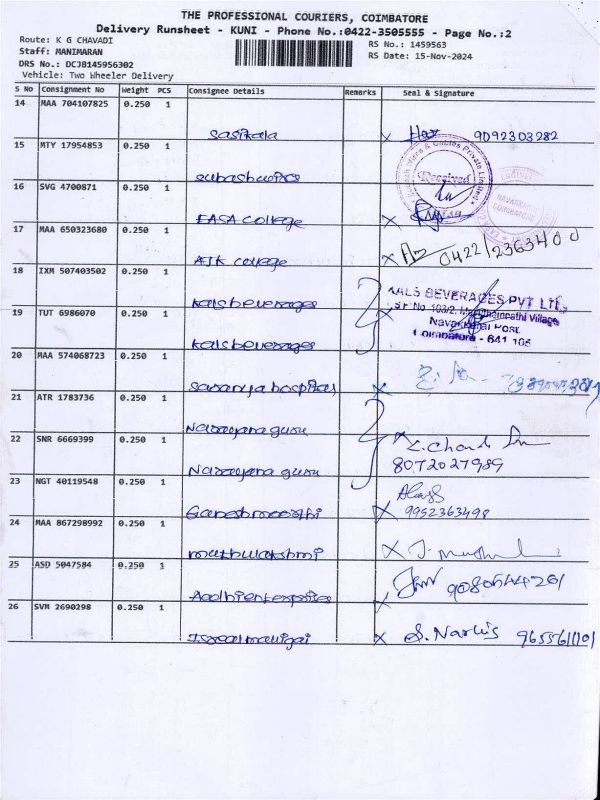 THE PROFESSIONAL COURIERS, COIMBATORE
Delivery Runsheet - KUNI - Phone No.:0422-3505555 - Page No.:2
Route: K G CHAVADI
RS No.: 1459563
Staff: MANIMARAN
RS Date: 15-Nov-2024
DRS No.: DCJB145956302
Vehicle: Two Wheeler Delivery
S No Consignment No Weight PCS Consignee Details Remarks Seal & Signature
14 MAA 704107825 0.250 1
Sasikala 9092303282
15 MTY 17954853 0.250 1
Received
16 SVG 4700871 0.250 1
EASA College
17 MAA 650323680 0.250 1
AJK College 0422/2363400
18 IXM 507403502 0.250 1
Kals beverages
KALS BEVERAGES PVT LTD
19 TUT 6986070 0.250 1
Navakkarai Post.
Coimbatore - 641 105
Kals beverages
20 MAA 574068723 0.250 1
Saranya hospital
21 ATR 1783736 0.250 1
Narayana guru
22 SNR 6669399 0.250 1
8072027989
Narayana guru
23 NGT 40119548 0.250 1
Ganesh moorthi 9952363498
24 MAA 867298992 0.250 1
muthulakshmi
25 ASD 5047584 0.250 1
Aadhi enterprises
26 SVM 2690298 0.250 1
S. Nargis 9655611101